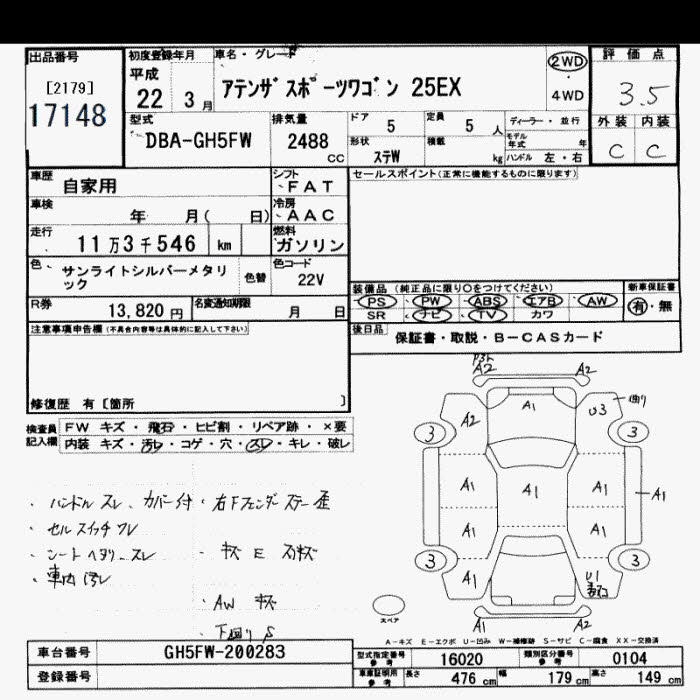 出品番号
[2179]
17148
初度登録年月
平成
22年 3月
車名・グレード
アテンザスポーツワゴン 25EX
2WD
・
4WD
評価点
3.5
外装 内装
C C
型式
DBA-GH5FW
排気量
2488
CC
ドア 5
定員 5 人
形状 ステW
積載 kg
ディーラー・並行
モデル年式 年
ハンドル 左・右
車歴 自家用
シフト FAT
車検 年 月( 日)
冷房 AAC
走行 11万3千546 km
燃料 ガソリン
色 サンライトシルバーメタリック
色替
色コード 22V
R券 13,820 円
名変通知期限 月 日
セールスポイント(正常に機能するものに限ります)
装備品 (純正品に限り○をつけてください)
PS PW ABS エアB AW
SR ナビ TV カワ
新車保証書
有・無
後日品 保証書・取説・B-CASカード
注意事項申告欄(不具合内容等は具体的に記入して下さい)
修復歴 有[箇所 ]
検査員記入欄
FW キズ・飛石・ヒビ割・リペア跡・×要
内装 キズ・汚レ・コゲ・穴・スレ・キレ・破レ
・ハンドルスレ、カバー付
・セルスイッチワレ
・シートヘタリ、スレ
・車内汚レ
・右Fフェンダステー歪
・キズ E
・AW キズ
・下廻りS
A2
A2
A2
A1
U3
曲り
3
3
A1
A1
A1
A1
A1
A1
A1
3
3
A1
U1
A1
A2
スペア
A-キズ E-エクボ U-凹み W-補修跡 S-サビ C-腐食 XX-交換済
車台番号 GH5FW-200283
登録番号
型式指定番号 参考 16020
類別区分番号 参考 0104
車庫証明用 参考 長さ 476 cm 幅 179 cm 高さ 149 cm